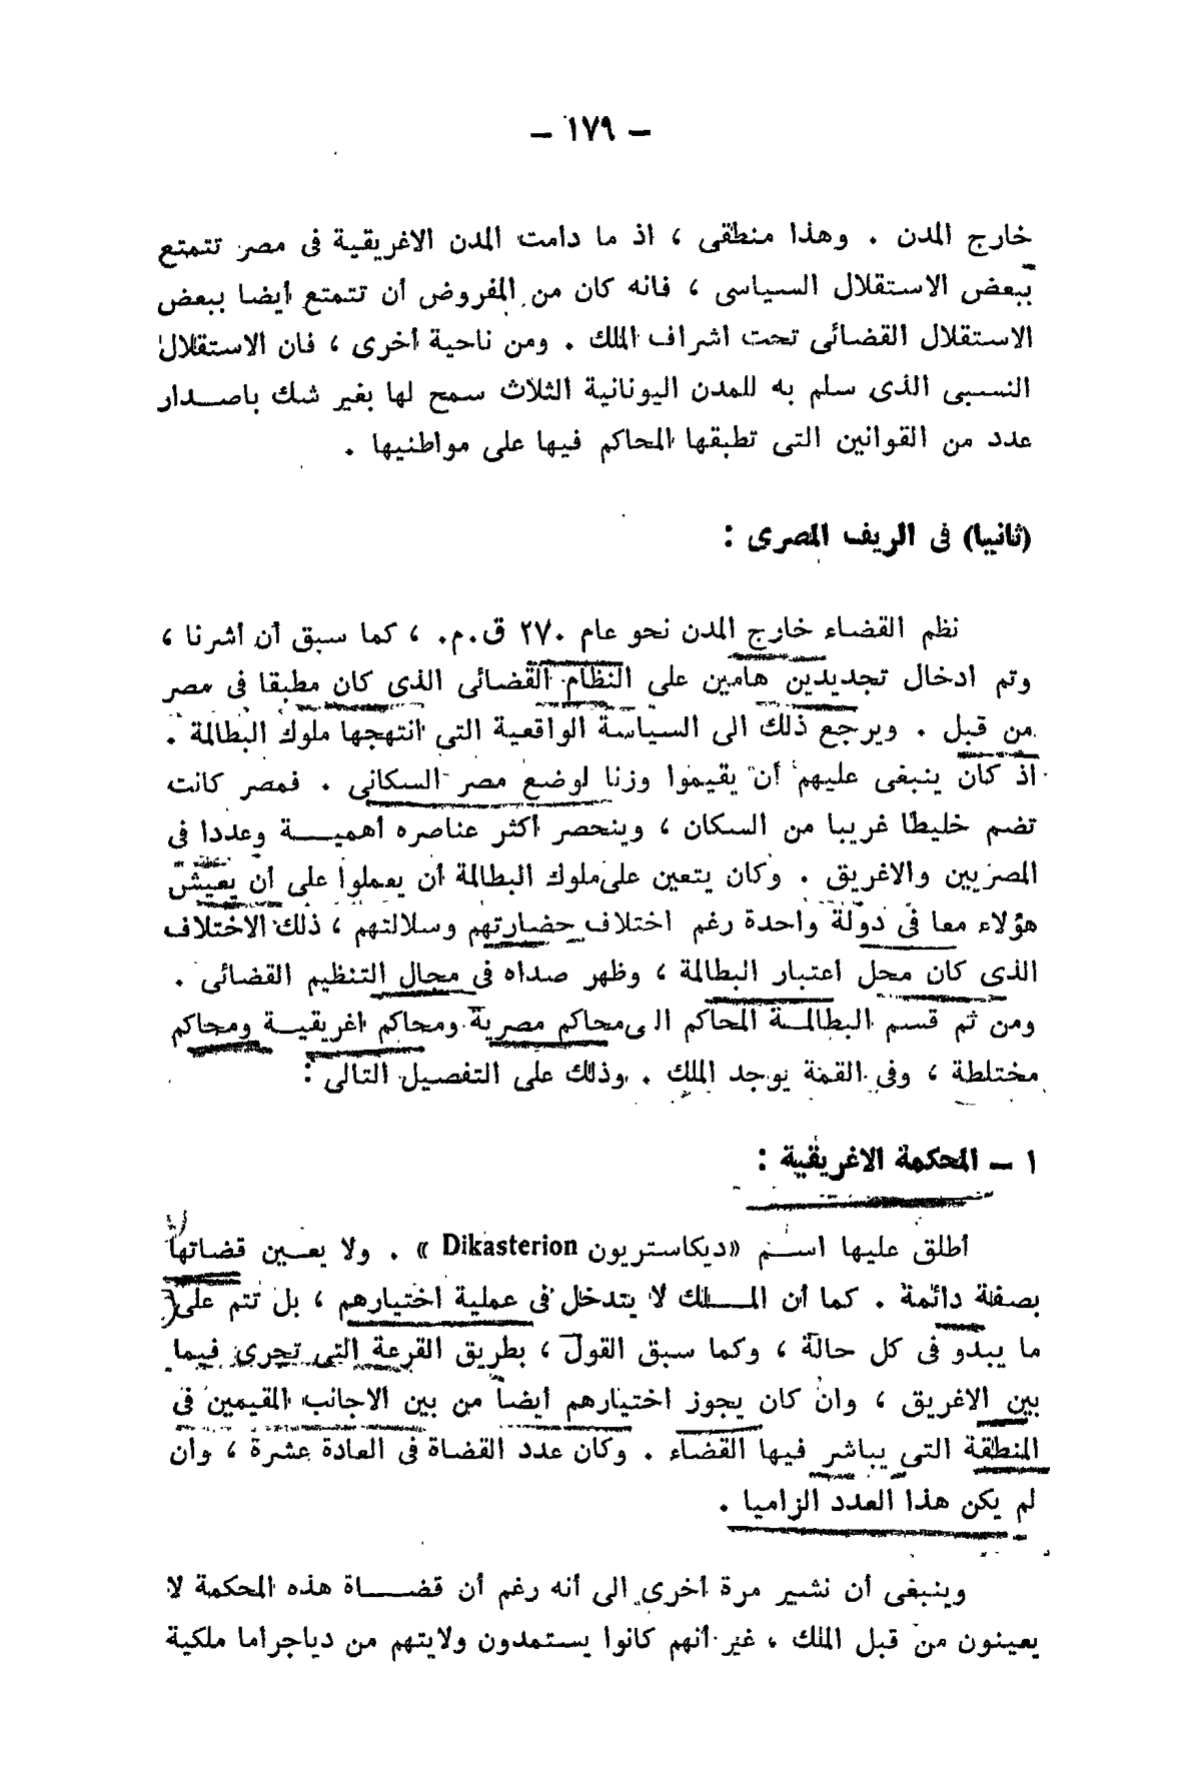 — ١٧٩ —
خارج المدن . وهذا منطقى ، اذ ما دامت المدن الاغريقية فى مصر تتمتع
ببعض الاستقلال السياسى ، فانه كان من المفروض أن تتمتع أيضا ببعض
الاستقلال القضائى تحت اشراف الملك . ومن ناحية أخرى ، فان الاستقلال
النسبى الذى سلم به للمدن اليونانية الثلاث سمح لها بغير شك باصدار
عدد من القوانين التى تطبقها المحاكم فيها على مواطنيها .
(ثانيا) فى الريف المصرى :
نظم القضاء خارج المدن نحو عام ٢٧٠ ق.م. ، كما سبق أن أشرنا ،
وتم ادخال تجديدين هامين على النظام القضائى الذى كان مطبقا فى مصر
من قبل . ويرجع ذلك الى السياسة الواقعية التى انتهجها ملوك البطالمة .
اذ كان ينبغى عليهم أن يقيموا وزنا لوضع مصر السكانى . فمصر كانت
تضم خليطا غريبا من السكان ، وينحصر أكثر عناصره أهمية وعددا فى
المصريين والاغريق . وكان يتعين على ملوك البطالمة أن يعملوا على أن يعيش
هؤلاء معا فى دولة واحدة رغم اختلاف حضارتهم وسلالتهم ، ذلك الاختلاف
الذى كان محل اعتبار البطالمة ، وظهر صداه فى مجال التنظيم القضائى .
ومن ثم قسم البطالمة المحاكم الى محاكم مصرية ومحاكم اغريقية ومحاكم
مختلطة ، وفى القمة يوجد الملك . وذلك على التفصيل التالى :
١ — المحكمة الاغريقية :
أطلق عليها اسم «ديكاستريون Dikasterion » . ولا يعين قضاتها
بصفة دائمة . كما أن الملك لا يتدخل فى عملية اختيارهم ، بل تتم على
ما يبدو فى كل حالة ، وكما سبق القول ، بطريق القرعة التى تجرى فيما
بين الاغريق ، وان كان يجوز اختيارهم أيضا من بين الاجانب المقيمين فى
المنطقة التى يباشر فيها القضاء . وكان عدد القضاة فى العادة عشرة ، وان
لم يكن هذا العدد الزاميا .
وينبغى أن نشير مرة أخرى الى أنه رغم أن قضاة هذه المحكمة لا
يعينون من قبل الملك ، غير أنهم كانوا يستمدون ولايتهم من دياجراما ملكية